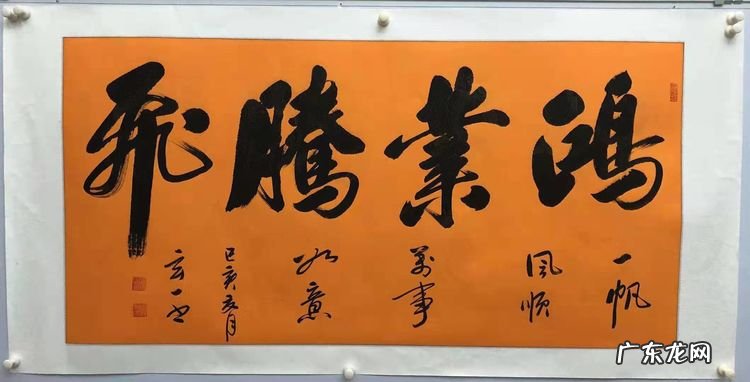 鴻業騰飛
一帆
風順
萬事
如意
己亥春月
玄一书
广东龙网